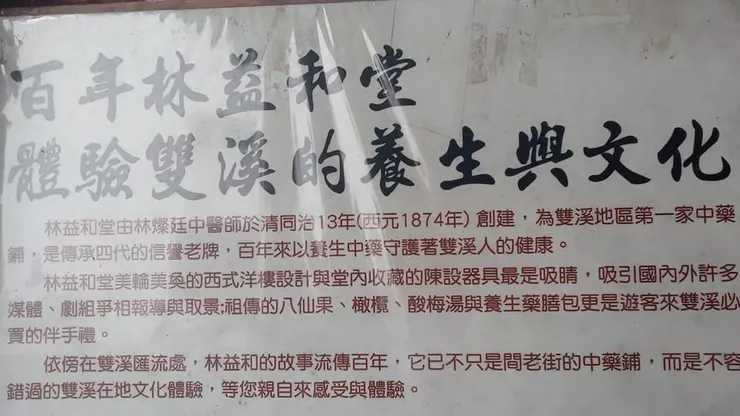 百年林益和堂
體驗雙溪的養生與文化
林益和堂由林燦廷中醫師於清同治13年(西元1874年) 創建，為雙溪地區第一家中藥
鋪，是傳承四代的信譽老牌，百年來以養生中藥守護著雙溪人的健康。
林益和堂美輪美奐的西式洋樓設計與堂內收藏的陳設器具最是吸睛，吸引國內外許多
媒體、劇組爭相報導與取景;祖傳的八仙果、橄欖、酸梅湯與養生藥膳包更是遊客來雙溪必
買的伴手禮。
依傍在雙溪匯流處，林益和的故事流傳百年，它已不只是間老街的中藥鋪，而是不容
錯過的雙溪在地文化體驗，等您親自來感受與體驗。